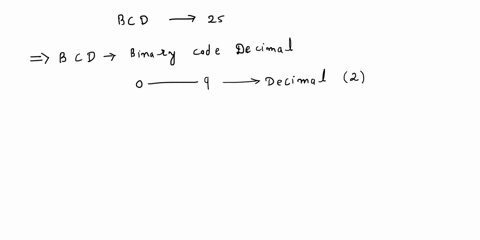 BCD → 25
⇒ BCD → Binary code Decimal
0 —— 9 → Decimal (2)